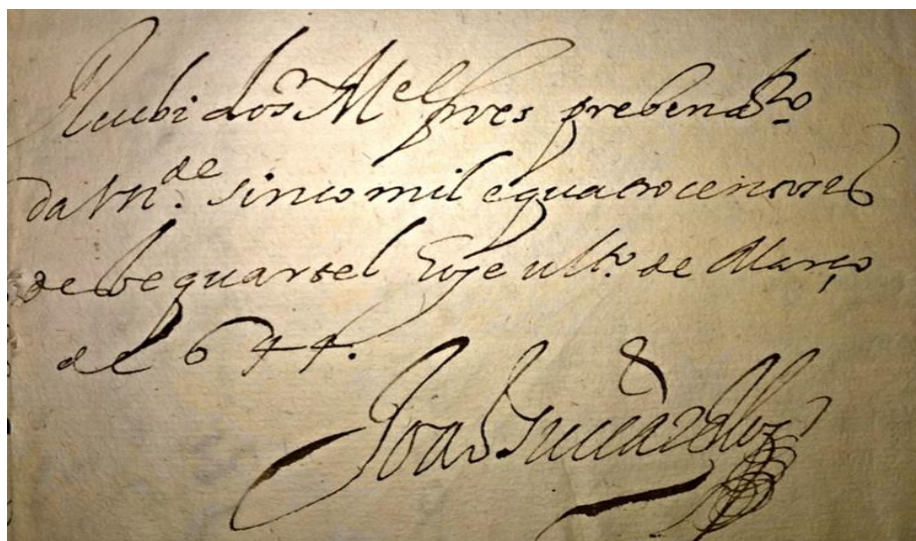 Recebi do sr Mel pires prebendro
da Vn.de sinco mil e quatrocentos rs
deste quartel Oje ult.o de Março
de 644.
Joaõ